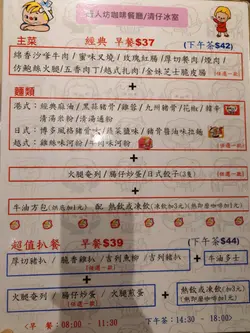 達人坊咖啡餐廳/清仔冰室
主菜 經典 早餐$37 (下午茶$42)
綿香沙嗲牛肉/蜜味叉燒/玫瑰紅腸/厚切餐肉/煙肉/
仿鮑絲火干/五香肉丁/越式扎肉/金絲芝士脆皮腸
(任選一款)
麵類
港式:經典麻油/黑蒜豬骨/雞蓉/九州豬骨/花椒/韓辛
清湯米粉/清湯通粉 (任選一款)
日式:博多風格豬骨
豬骨醬油味拉麵
越式:雞絲味河粉
牛肉河粉
火腿奄列/腸仔炒蛋/日式餃子(3隻)
(任選一款)
牛油方包(烘底加1元) 配 熱飲或凍飲(凍飲加3元)
超值扒餐 早餐$39 (下午茶$44)
厚切豬扒/脆香雞扒/吉列魚柳/吉列豬扒
(任選一款)
牛油多士
火腿奄列/腸仔炒蛋/火腿煎蛋
(任選一款)
熱飲或凍飲
(早 餐:08:00 - 11:30
下午茶:14:30 - 18:00)